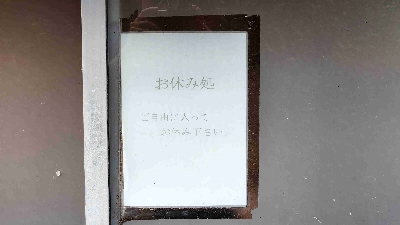 お休み処
ご自由に入って
お休み下さい。